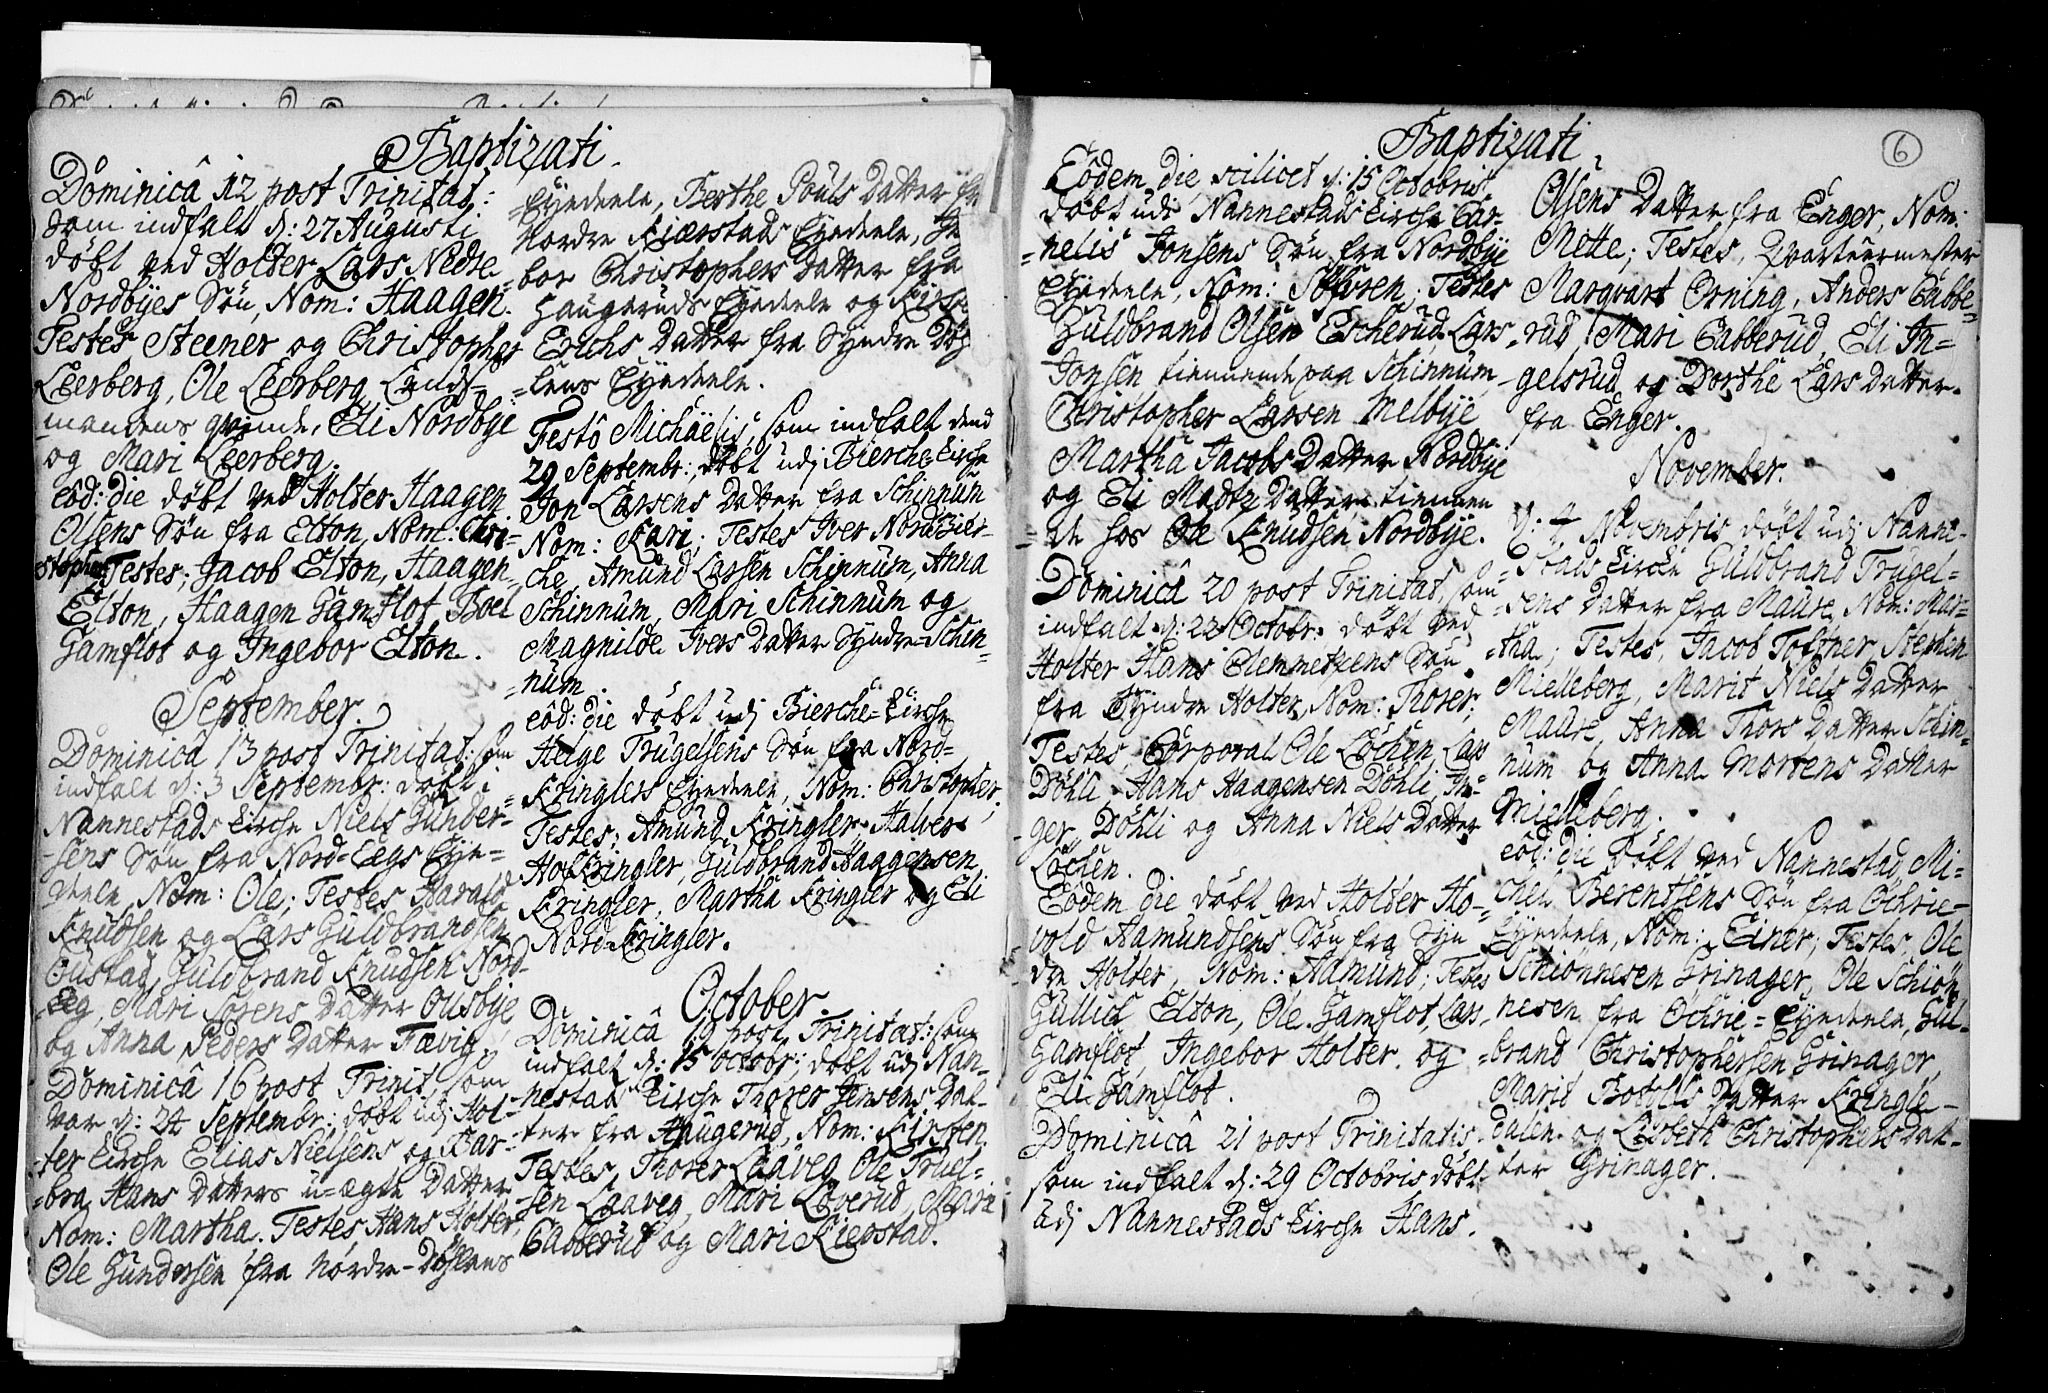 Baptizati
Dominicâ 12 post Trinitat:
som indfalt d: 27 Augusti
döbt ved Holter Lars Nedre
Nordbyes Sön, Nom: Haagen.
Testes Steener og Christopher
Leerberg, Ole Leerberg, Lends-
mandens qvinde, Eli Nordbye
og Mari Leerberg.
eôd: die döbt ved Holter Haagen
Olsens Sön fra Elton, Nom: Chri-
stopher Testes; Jacob Elton, Haagen
Elton, Haagen Gamflot, Boel
Gamflot og Ingebor Elton.
September.
Dominicâ 13 post Trinitat: som
indfalt d: 3 Septembr: döbt i
Nannestads Kirche Niels Gunder-
sens Sön fra Nord-Eegs Eyn-
deele, Nom: Ole; Testes Harald
Knudsen og Lars Guldbrandsen
Oustad, Guldbrand Knudsen Nord-
Eeg, Mari Sörens Datter Ousbye
og Anna Peders Datter Fævig
Dominicâ 16 post Trinit: som
var d: 24 Septembr: döbt udj Hol-
ter Kirche Elias Nielsens og Bar-
bra Hans Datters u-ægte Datter
Nom: Martha. Testes, Hans Holter,
Ole Gundersen fra Nordre-Döhlens
Eyedeele, Berthe Pouls Datter fra
Nordre Kierstads Eyedeele,
bor Christophers Datter fra
Haugeruds Eyedeele og
Erichs Datter fra Syndre
lens Eyedeele.
Festô Michaëlis, som indfalt dend
29 Septembr:, döbt udj Bierche Kirche
Jon Larsens Datter fra Schinnum
Nom: Kari; Testes Iver Nord Bier-
che, Amund Larsen Schinnum, Anna
Schinnum, Mari Schinnum og
Magnilde Ivers Datter Syndre-Schin-
num.
eôd: die döbt udj Bierche-Kirche
Helge Trugelsens Sön fra Nord-
Kringlers Eyedeele, Nom: Christopher;
Testes; Amund Kringler, Halver
Hof Kringler, Guldbrand Haagensen
Kringler, Martha Kringler og Eli
Nord-Kringler.
October.
Dominicâ 19 post Trinitat: som
indfalt d: 15 Octobr:, döbt udj Nan-
nestads Kirche Thorer Jensens Dat-
ter fra Haugerud, Nom: Kirsten.
Testes, Thorer Laaveg, Ole Truel-
sen Laaveg, Mari Löverud, Mari
Cabberud og Mari Kierstad.
6
Baptizati
Eôdem die scilicet d: 15 Octobris
döbt udi Nannestads Kirche Cor-
nelis Jonsens Sön fra Nordbye
Eyedeele, Nom: Sôfren; Testes
Guldbrand Olsen Escherud, Lars
Jonsen tiennende paa Schinnum,
Christopher Larsen Melbye
Martha Jacobs Datter Nordbye
og Eli Madtz Datter tiennen
de hos Ole Knudsen Nordbye.
Dominicâ 20 post Trinitat, som
indfalt d: 22 Octobr. döbt ved
Holter Hans Clemmetzens Sön
fra Syndre Holter, Nom: Thorer;
Testes, Corporal Ole Löchen, Lars
Döhli, Hans Haagensen Döhli, In-
ger Döhli og Anna Niels Datter
Löchen.
Eôdem die döbt ved Holter Ho-
vold Aamundsens Sön fra Syn
dre Holter, Nom: Aamund; Testes
Gullich Elton, Ole Gamflot, Lars
Gamflot, Ingebor Holter og
Eli Gamflot.
Dominicâ 21 post Trinitatis
som indfalt d: 29 Octobris döbt
udj Nannestads Kirche Hans
Olsens Datter fra Enger, Nom:
Mette; Testes, Qvarteermester
Marqvart Orning, Anders Cabbe-
rud, Mari Cabberud, Eli In-
gelsrud og Dorthe Lars Datter
fra Enger.
November.
D: 4 Novembris döbt udj Nanne-
stads Kirche Guldbrand Trugel-
sens Datter fra Maure, Nom: Mar-
tha; Testes, Jacob Toftner, Stephen
Mielleberg, Marit Niels Datter
Maure, Anna Thors Datter Schin-
num og Anna Mortens Datter
Mielleberg.
eôd: die döbt ved Nannestad, Mi-
chel Berentsens Sön fra Ochrie-
Eyedeele, Nom: Einer; Testes, Ole
Schiönnesen Grinager, Ole Schiön-
nesen fra Ochrie-Eyedeele, Gul-
brand Christophersen Grinager,
Marit Botolls Datter Kringle-
dalen og Lisbeth Christophers Dat-
ter Grinager.